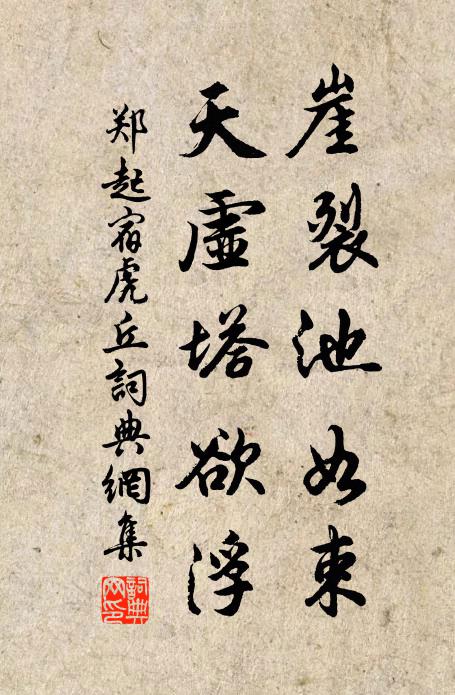 崖裂池如束
天虚塔欲浮
郑起宿虎丘詞典網集
詞典
网印